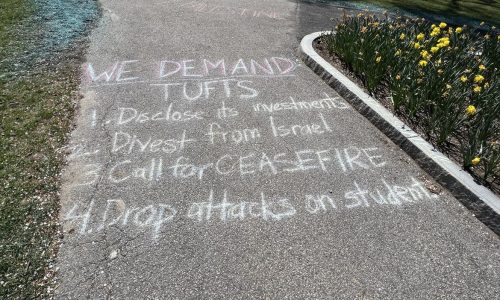 WE DEMAND
TUFTS
1. Disclose its investments
2. Divest from Israel
3 Call for CEASEFIRE
4. Drop attacks on student